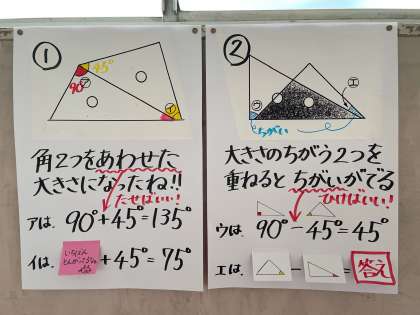 ①
45°
90°
ア
イ
角2つをあわせた
大きさになったね!!
たせばいい!
アは 90°+45°=135°
イは +45°=75°
②
エ
ウ
ちがい
大きさのちがう2つを
重ねると ちがいがでる
ひけばいい!
ウは 90°-45°=45°
エは - = 答え